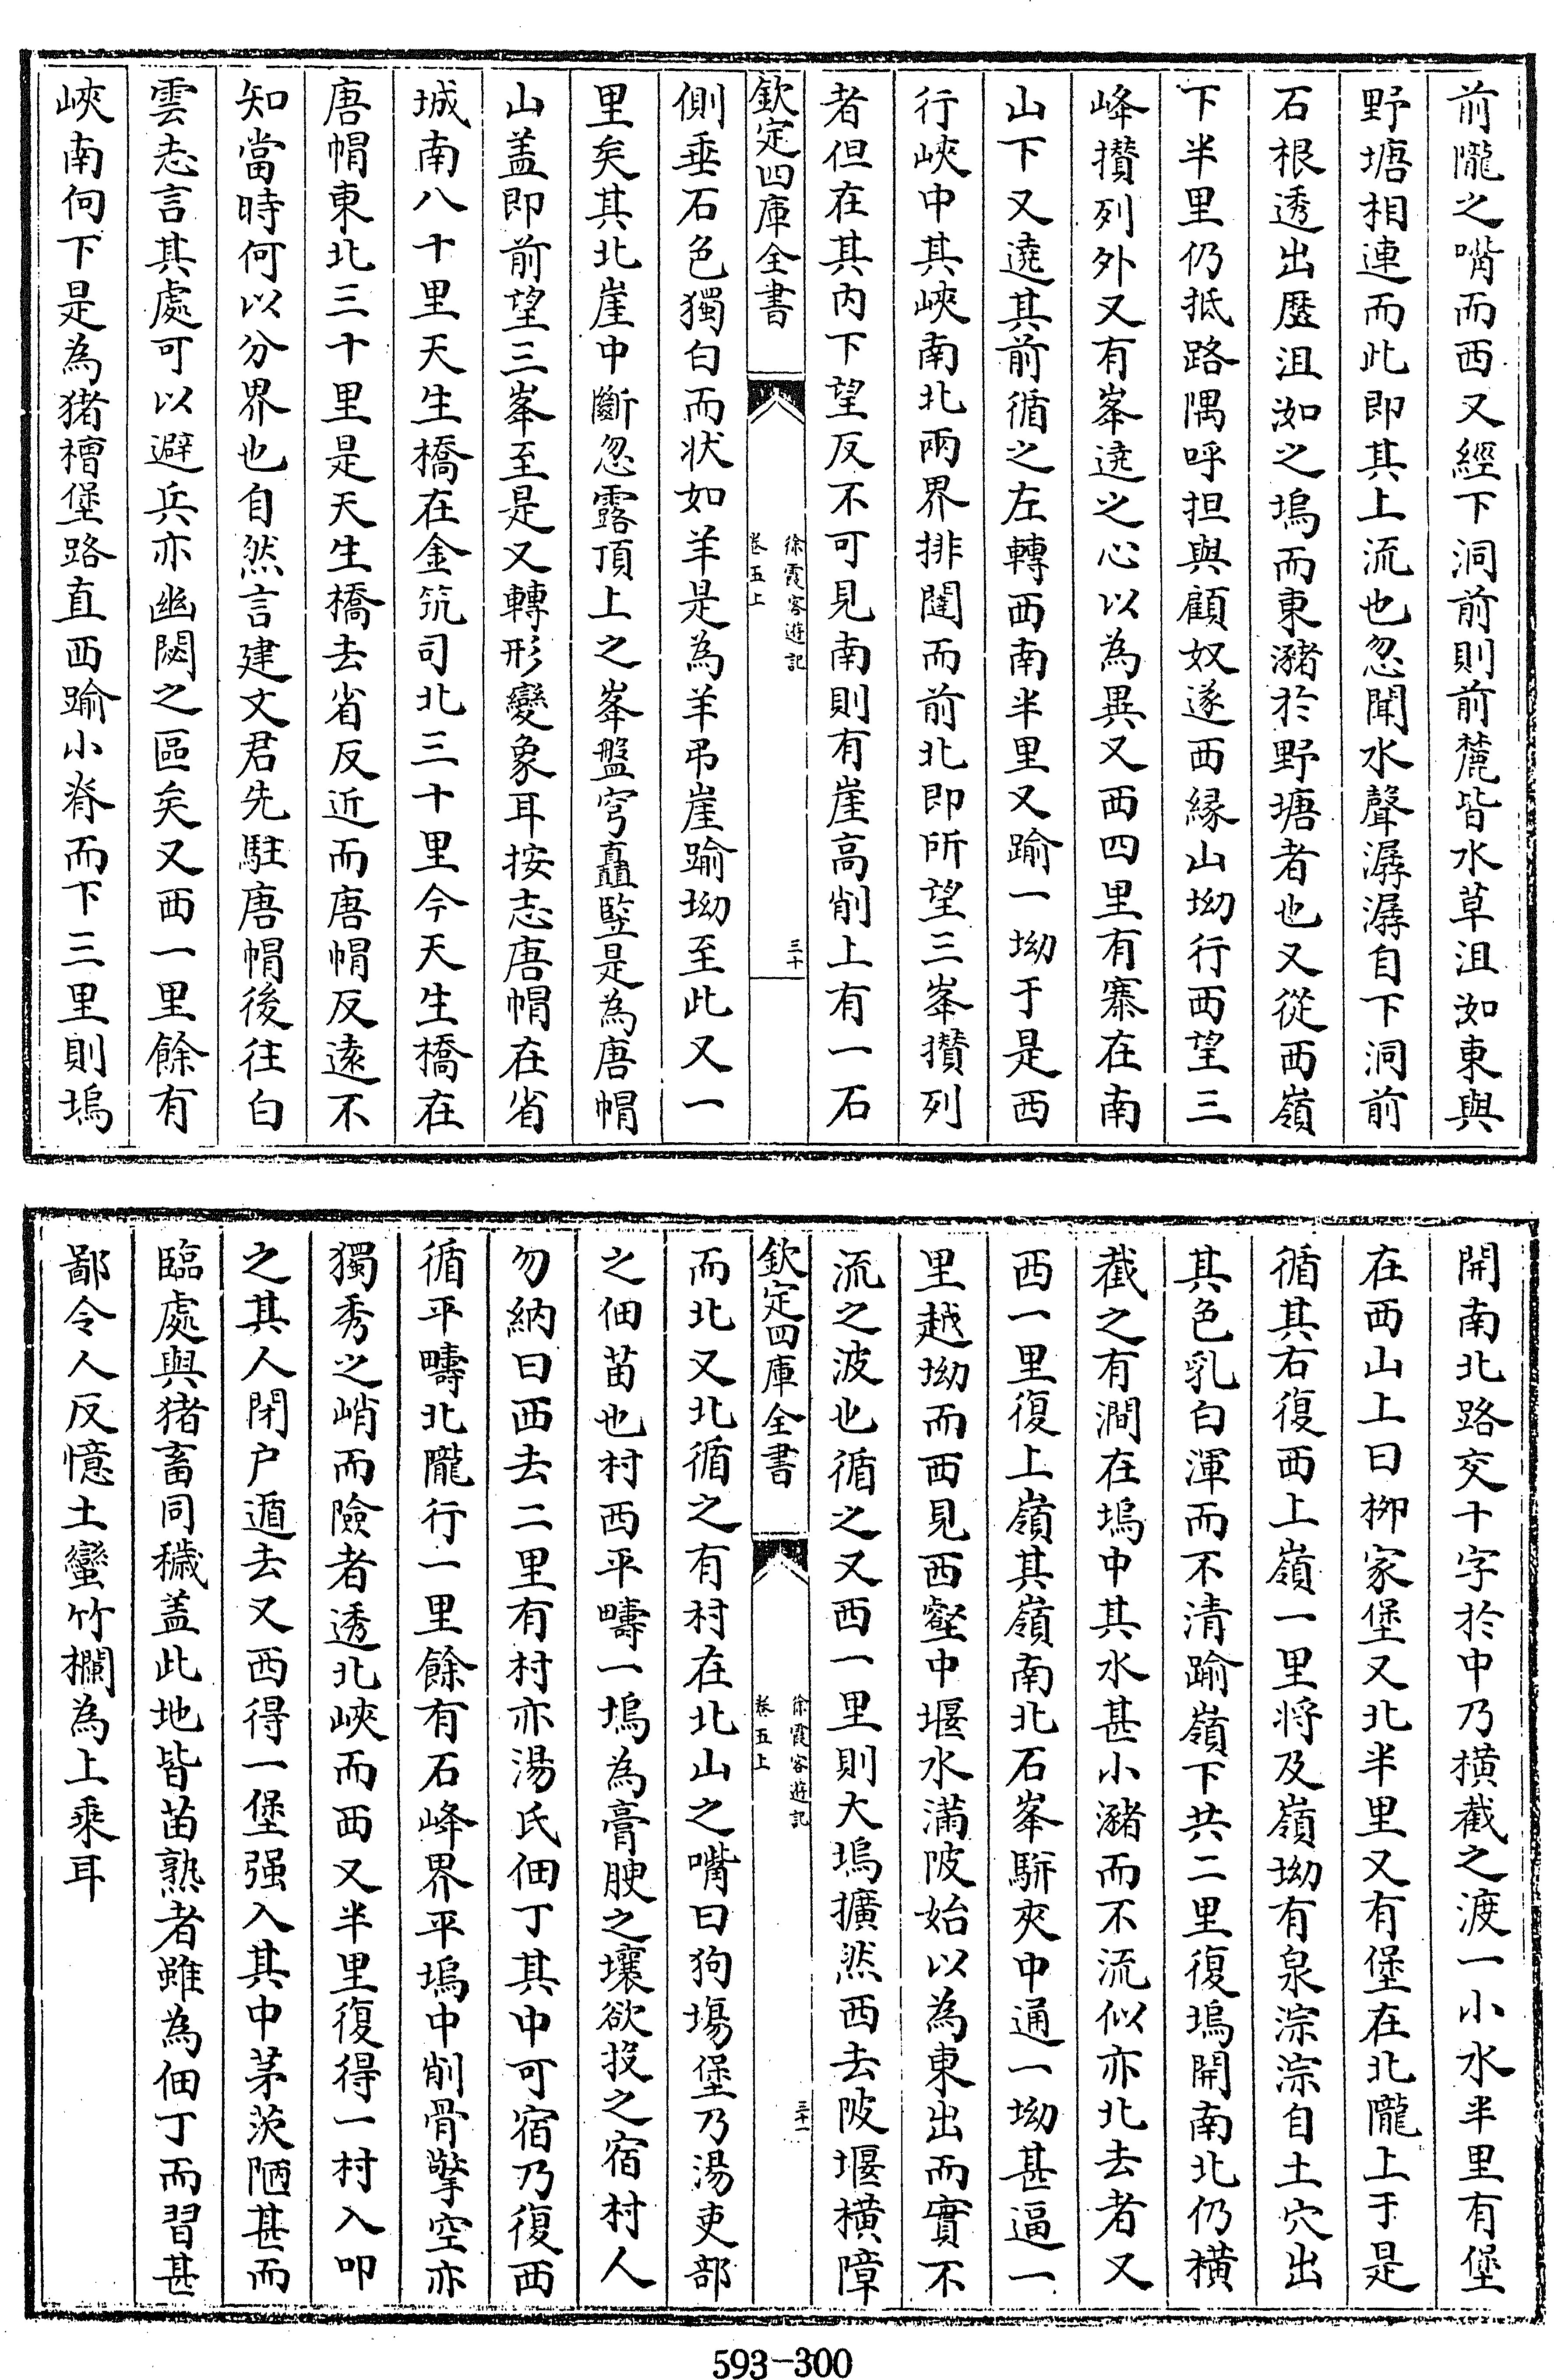 前隴之嘴而西又經下洞前則前麓皆水草沮洳東與
野塘相連而此即其上流也忽聞水聲潺潺自下洞前
石根透出歷沮洳之塢而東瀦於野塘者也又從西嶺
下半里仍抵路隅呼担與顧奴遂西緣山坳行西望三
峰攢列外又有峯遶之心以為異又西四里有寨在南
山下又遶其前循之左轉西南半里又踰一坳于是西
行峽中其峽南北兩界排闥而前北即所望三峯攢列
者但在其内下望反不可見南則有崖高削上有一石
欽定四庫全書
徐霞客遊記
卷五上
三十
側垂石色獨白而状如羊是為羊吊崖踰坳至此又一
里矣其北崖中斷忽露頂上之峯盤穹矗竪是為唐帽
山盖即前望三峯至是又轉形變象耳按志唐帽在省
城南八十里天生橋在金筑司北三十里今天生橋在
唐帽東北三十里是天生橋去省反近而唐帽反遠不
知當時何以分界也自然言建文君先駐唐帽後往白
雲志言其處可以避兵亦幽閟之區矣又西一里餘有
峽南向下是為猪槽堡路直西踰小脊而下三里則塢
開南北路交十字於中乃横截之渡一小水半里有堡
在西山上曰栁家堡又北半里又有堡在北隴上于是
循其右復西上嶺一里将及嶺坳有泉淙淙自土穴出
其色乳白渾而不清踰嶺下共二里復塢開南北仍横
截之有澗在塢中其水甚小瀦而不流似亦北去者又
西一里復上嶺其嶺南北石峯駢夾中通一坳甚逼一
里越坳而西見西壑中堰水滿陂始以為東出而實不
流之波也循之又西一里則大塢擴然西去陂堰横障
欽定四庫全書
徐霞客遊記
卷五上
三十一
而北又北循之有村在北山之嘴曰狗塲堡乃湯吏部
之佃苗也村西平疇一塢為膏腴之壤欲投之宿村人
勿納曰西去二里有村亦湯氏佃丁其中可宿乃復西
循平疇北隴行一里餘有石峰界平塢中削骨擎空亦
獨秀之峭而險者透北峽而西又半里復得一村入叩
之其人閉户遁去又西得一堡强入其中茅茨陋甚而
臨處與猪畜同穢盖此地皆苗熟者雖為佃丁而習甚
鄙令人反憶土蠻竹欄為上乗耳
593-300